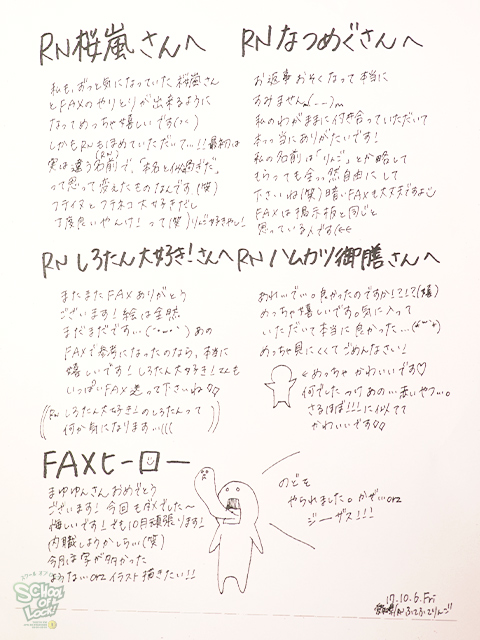 RN桜嵐さんへ
私も、ずっと気になっていた桜嵐さん
とFAXのやりとりが出来るように
なってめっちゃ嬉しいです(><)
しかもRNもほめていただいて…!!最初は
実は違う名前(RN)で、「本名と似過ぎだ」
って思って変えたものなんです(笑)
大好きだし
丁度良いやんけ!って(笑)りんご好きやし!
RNなつめぐさんへ
お返事おそくなって本当に
すみませんm(__)m
私のわがままに付き合っていただいて
本っ当にありがたいです!
私の名前は「りんご」とか略して
もらっても全っ然自由にして
下さいね(笑)暗いFAXも大丈夫ですよ
FAXは掲示板と同じと
思っている人です(((
RNしろたん大好き!さんへ
またまたFAXありがとう
ございます!絵は全然
まだまだです…(´・ω・`)あの
FAXで参考になったのなら、本当に
嬉しいです!しろたん大好き!さんも
いっぱいFAX送って下さいね♡♡
((RNしろたん大好き!のしろたんって
何か気になります…(((
RNハムカツ御膳さんへ
あれいで…。良かったのですか!?!?(嬉)
めっちゃ嬉しいです。気に入って
いただいて本当に良かった…(*´ω`*)
めっちゃ見にくくてごめんなさい!
←めっちゃかわいいです♡
何でしたっけあの…赤いやつ…。
さるぼぼ!!!に似てて
かわいいです♡♡
FAXヒーロー
まゆゆんさんおめでとう
ございます!今回もダメでした〜
悔しいです!でも10月頑張ります!
(内職しよかしらい(笑)
今月は字が多かった
ようなないorzイラスト描きたい!!
のどを
やられました。かぜぃorz
ジーザス!!!
スクール オブ ロック!
SCHOOL OF LOCK!
17.10.6.Fri